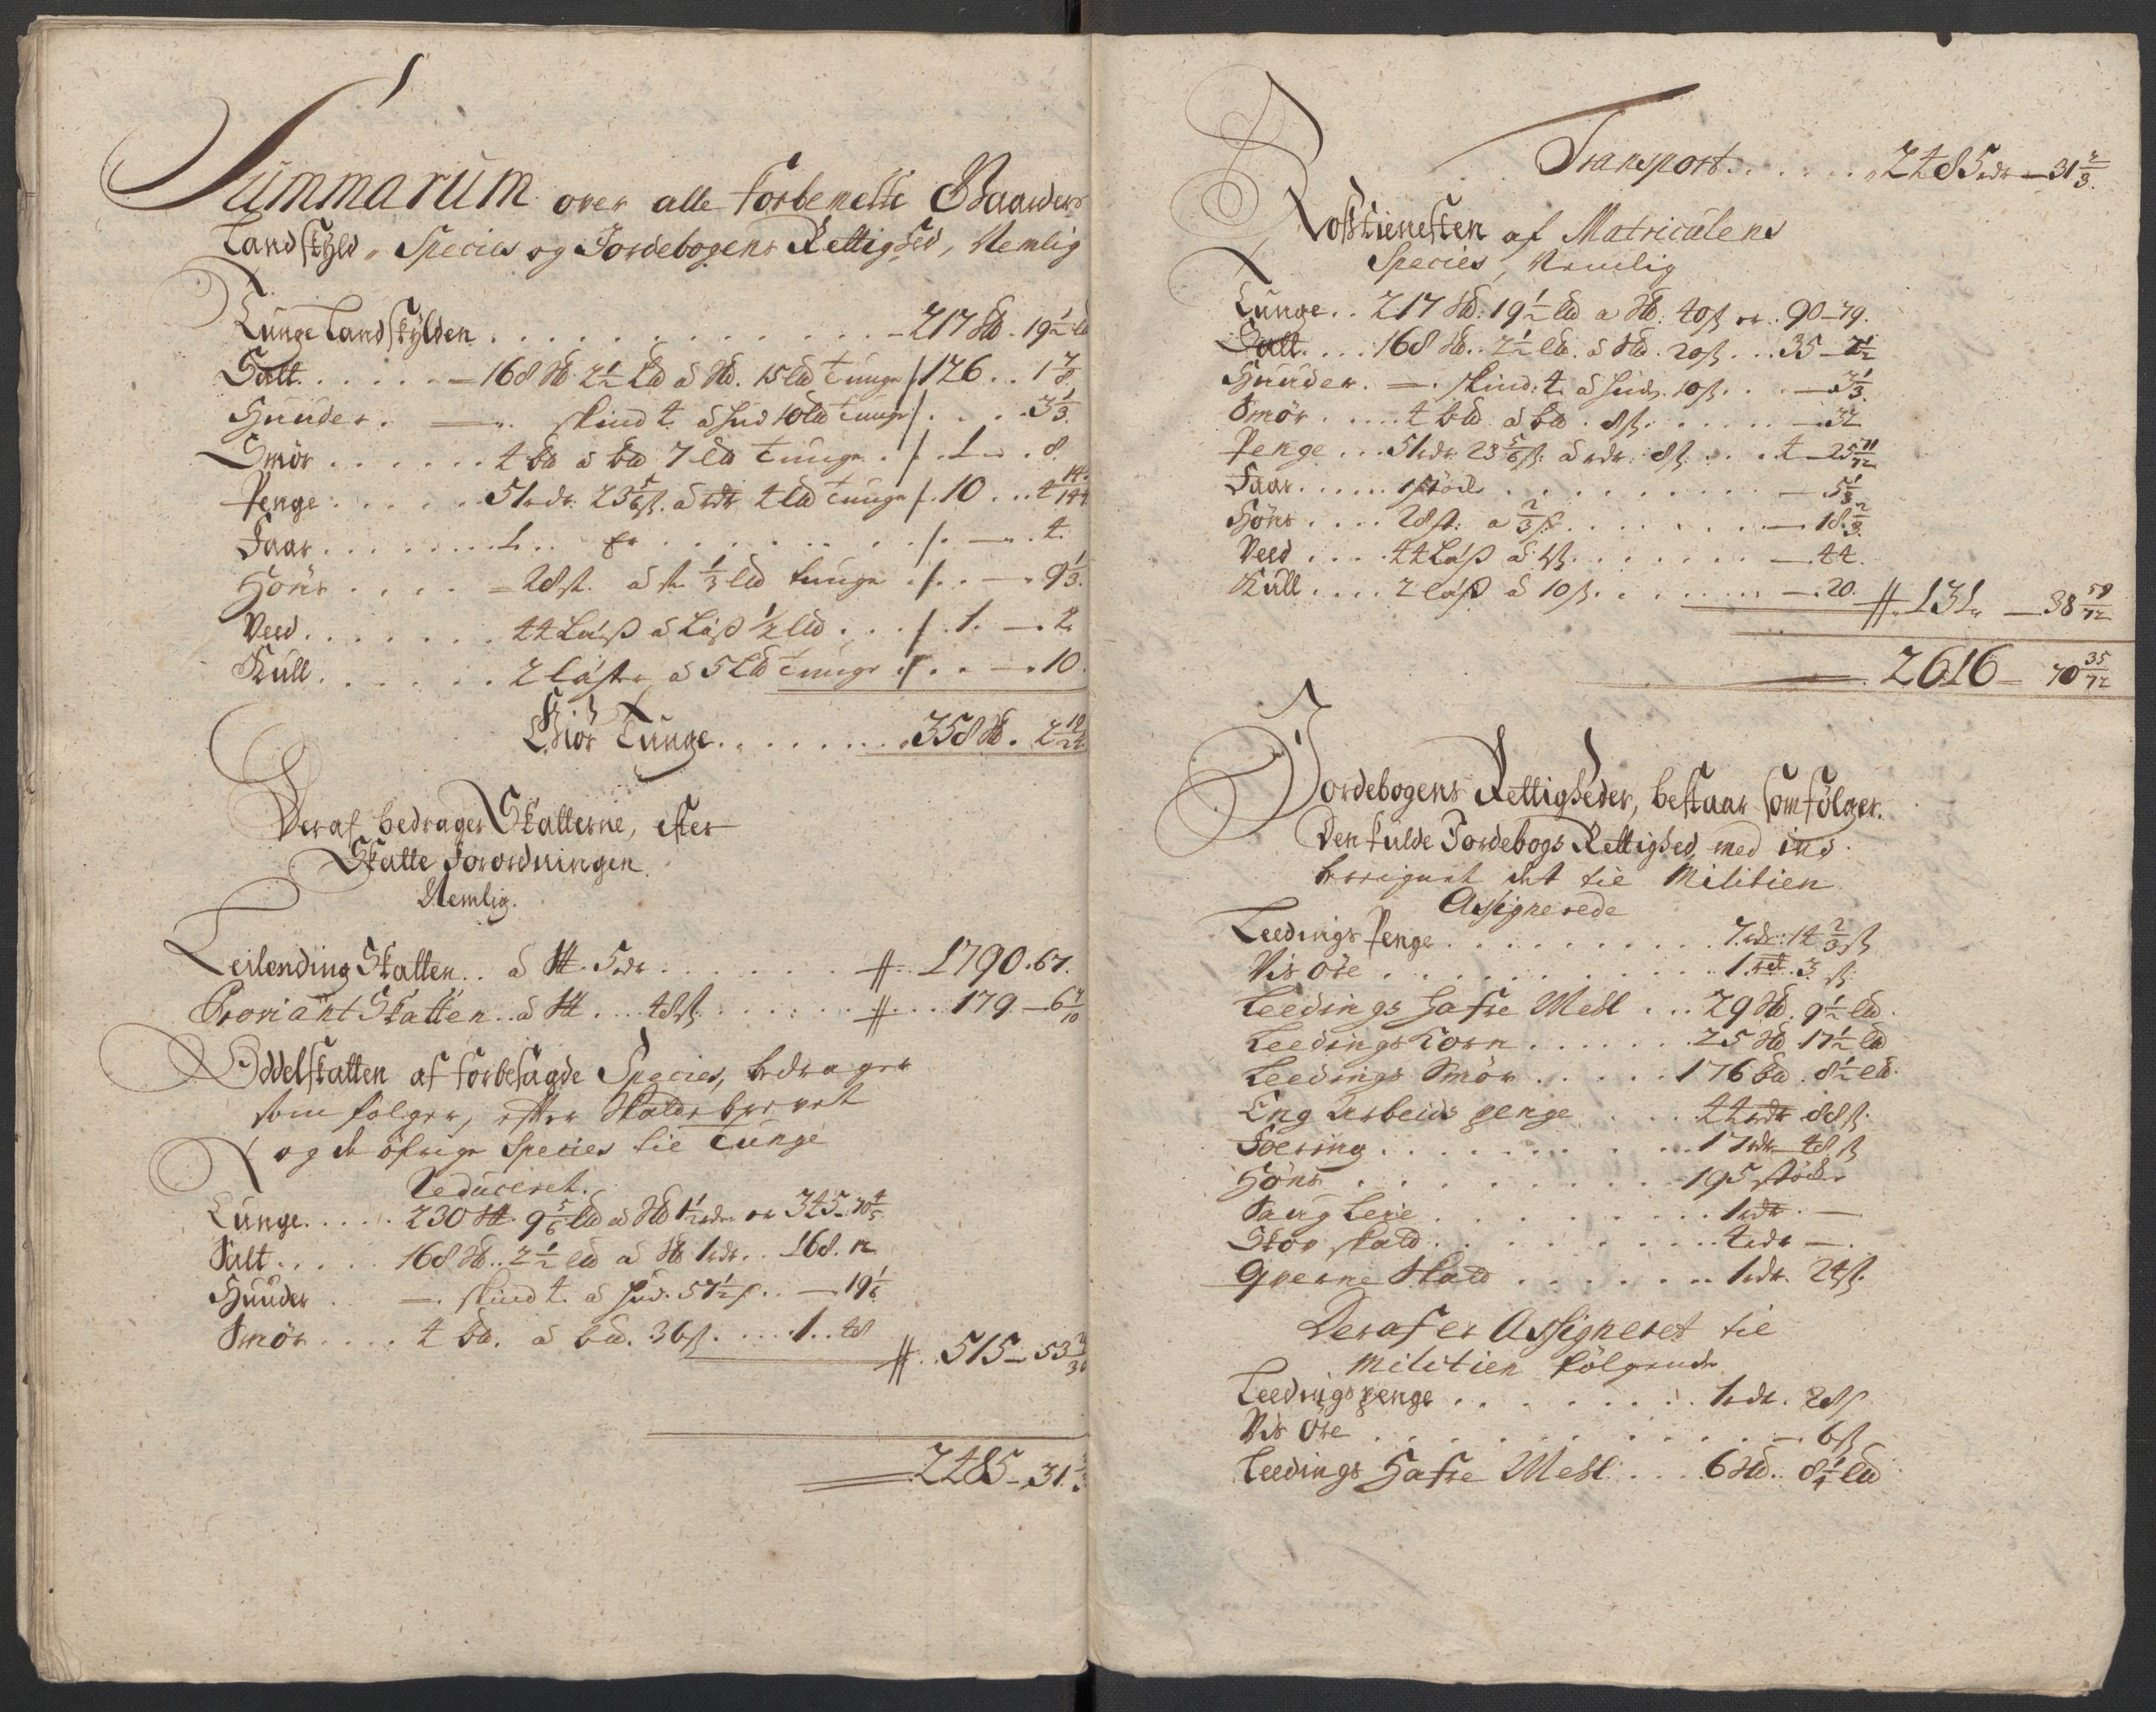 Summarum over alle forbemelte Gaarders
Landskyld, Species og Jordebogens Rettighed, Nemlig
Tunge Landskylden . . . . . 217 Sld. 19½ Ld
Salt . . . . . 168 Sld 2½ Ld à Sld. 15 Ld Tunge /. 126 . . 1 7/8
Huuder . — skind 4 à hud 10 Ld Tunge /. . . . 3 1/3.
Smör . . . . . 4 bd à bd 7 Ld Tunge . /. 1 . . 8.
Penge . . . . . 51 rdr. 23 5/6 ß. à rdr 4 Ld Tunge /. 10 . . . 4 14/144
Faar . . . . . 1 . . er . . . . . /. — . 4.
Höns . . . . 28 st. à st. 1/3 Ld tunge . /. . — . 9 1/3.
Veed . . . . . 44 Læß à Læß ½ Ld . . . /. 1. — . 2.
Kull . . . . . 2 læster à 5 Ld Tunge . /. . — . 10.
Giör Tunge . . . . . 358 Sld. 2 19/24
Deraf bedrager Skatterne, efter
Skatte Forordningen.
Nemlig.
Leilending Skatten . . à Sld. 5 rdr . . . . . # . . 1790. 67.
Proviant Skatten . . à Sld . . . 48 ß . . . . . # . . . 179 — 6 7/10
Oddelskatten af forbesagde Species, bedrager
som fölger, efter Skattebrevet
og de öfrige Species til Tunge
Reduceret.
Tunge . . . . . 230 Sld. 9 5/6 Ld à Sld 1½ rdr er 345. 70 4/5.
Salt . . . . . 168 Sld. . 2½ Ld à Sld 1 rdr . . 168. 12
Huuder . — . skind 4. à hud. 57½ ß . . — . 19 1/6
Smör . . . . 4 bd. à bd. 36 ß . . . . . 1 . . 48
# . . 515 — 53
2485 — 31
Transport . . . . . . 2485 rdr — 31 2/3.
Rosstienesten af Matriculens
Species, Nemlig
Tunge . . 217 Sld. 19½ Ld à Sld. 40 ß er . . 90 — 79.
Salt . . . 168 Sld. . 2½ Ld. à Sld. 20 ß . . . 35 — 2½
Huuder . — . skind: 4. à hud. 10 ß . . . — 3 1/3.
Smör . . . . . 4 bd à bd . 8 ß . . . . . — 32
Penge . . . 51 rdr. 23 5/6 ß. à rdr. 8 ß . . . . 4 — 25 71/72
Faar . . . . . 1 stöck . . . . . — 5 1/3
Höns . . . . 28 st: à 2/3 ß . . . . . — 18 2/3.
Veed . . . . 44 Læß à 1 ß . . . . . — 44.
Kull . . . . 2 læß à 10 ß . . . . . — . 20. # . 131. — 38 59/72
2616 — 70 35/72
Jordebogens Rettigheder, bestaar som fölger.
Den fulde Jordebogs Rettighed, med ind
beregnet det til Militien
Assignerede
Leedings Penge . . . . . 7 rdr. 14 2/3 ß
Vis Öre . . . . . 1 rdr. 3 ß.
Leedings Hafre Mehl . . . 29 Sld. 9½ Ld.
Leedings Korn . . . . . 25 Sld 17½ Ld
Leedings Smör . . . . . 176 bd. 8½ Ld.
Eng Arbeids penge . . . . 44 rdr. 88 ß.
Foering . . . . . 17 rdr. 48 ß
Höns . . . . . 195 stöcker
Saug Leie . . . . . 1 rdr. —
Skov skatt . . . . . 4 rdr — .
Qverne Skatt . . . . . 1 rdr. 24 ß.
Deraf er Assigneret til
Militien fölgende
Leedings penge . . . . . 1 rdr. 28 ß
Vis Öre . . . . . — . 6 ß
Leedings Hafre Mehl . . . 6 Sld. . 8¼ Ld